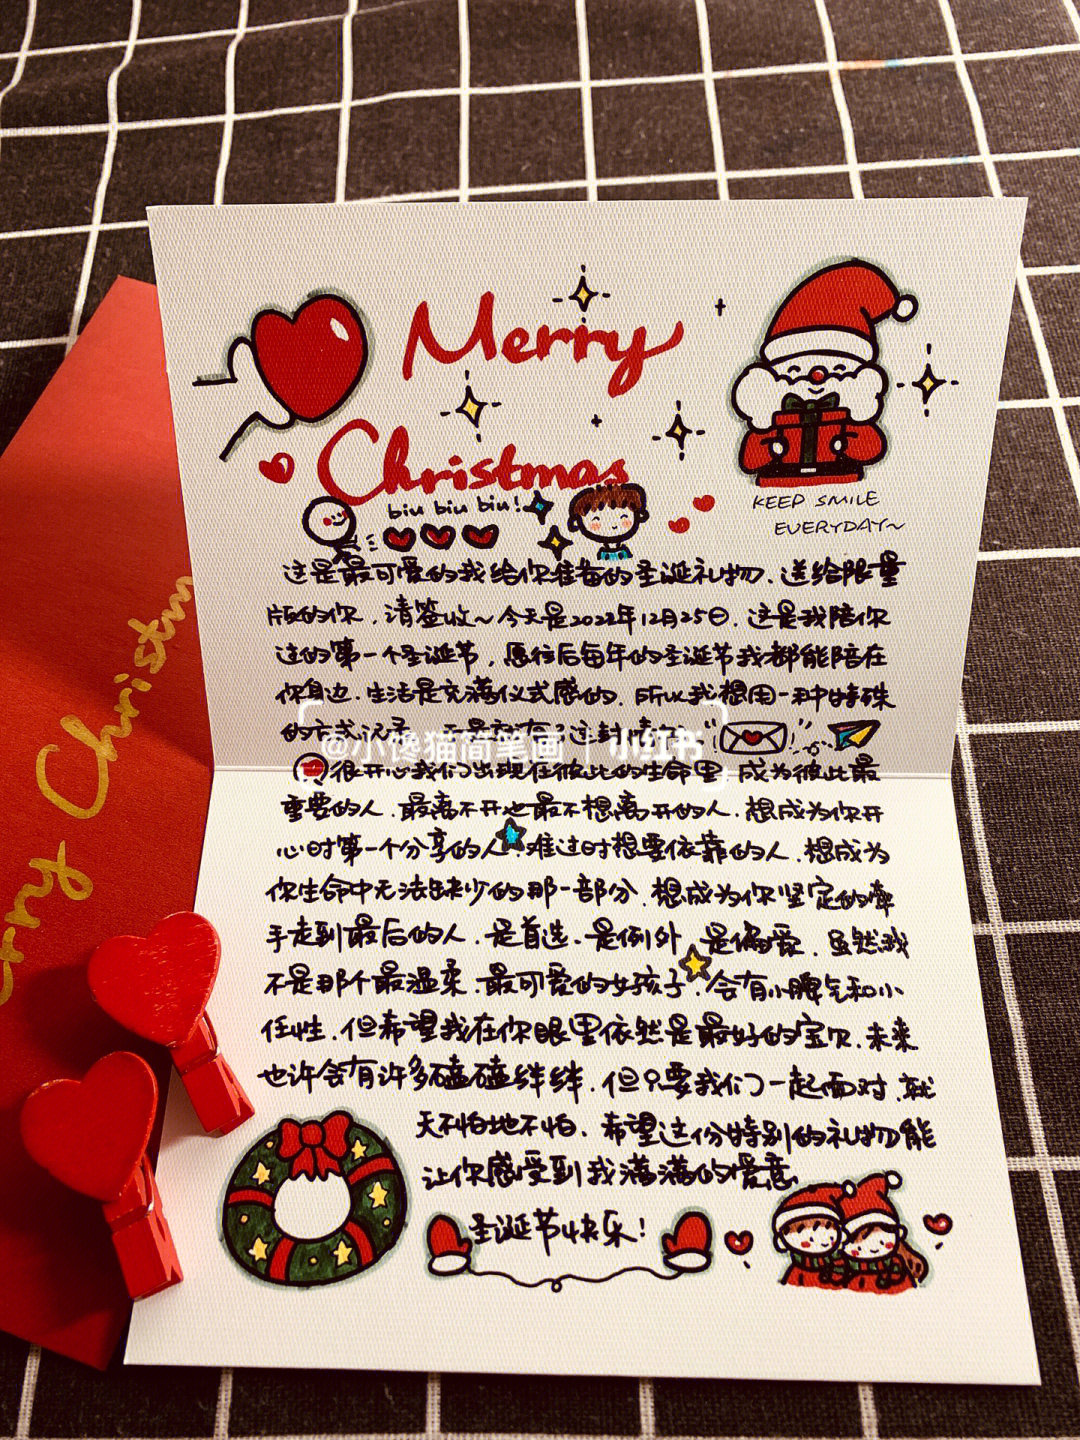 Merry
Christmas
biu biu biu!
KEEP SMILE
EVERYDAY~
这是最可爱的我给你准备的圣诞礼物.送给限量
版的你.请签收~今天是2022年12月25日.这是我陪你
过的第一个圣诞节,愿往后每年的圣诞节我都能陪在
你身边.生活是充满仪式感的.所以我想用一种特殊
的方式记录.于是就有了这封情书
@小馋猫简笔画 小红书
很开心我们出现在彼此的生命里.成为彼此最
重要的人.最离不开也最不想离开的人.想成为你开
心时第一个分享的人.难过时想要依靠的人.想成为
你生命中无法缺少的那一部分.想成为你坚定的牵
手走到最后的人.是首选.是例外.是偏爱.虽然我
不是那个最温柔.最可爱的女孩子.会有小脾气和小
任性.但希望我在你眼里依然是最好的宝贝.未来
也许会有许多磕磕绊绊.但只要我们一起面对.就
天不怕地不怕.希望这份特别的礼物能
让你感受到我满满的爱意
圣诞节快乐!
Merry Christm